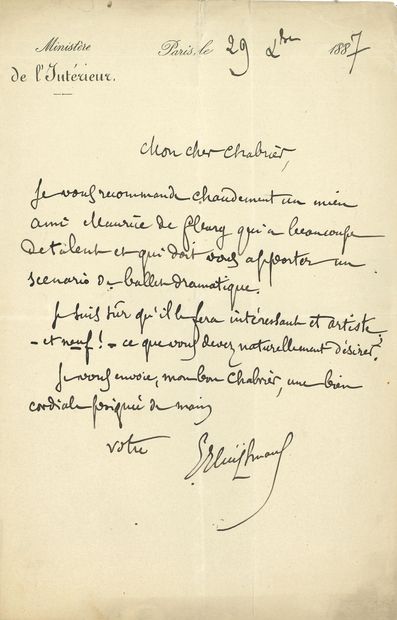 Ministère
de l'Intérieur.
Paris, le 29 Xbre 1887
Mon cher Chabrier,
Je vous recommande chaudement un mien
ami Maurice de Fleury qui a beaucoup
de talent et qui doit vous apporter un
scenario de ballet dramatique.
Je suis sûr qu'il le fera intéressant et artiste
- et neuf! - ce que vous devez naturellement désirer.
Je vous envoie, mon bon Chabrier, une bien
cordiale poignée de main
votre
G Huysmans